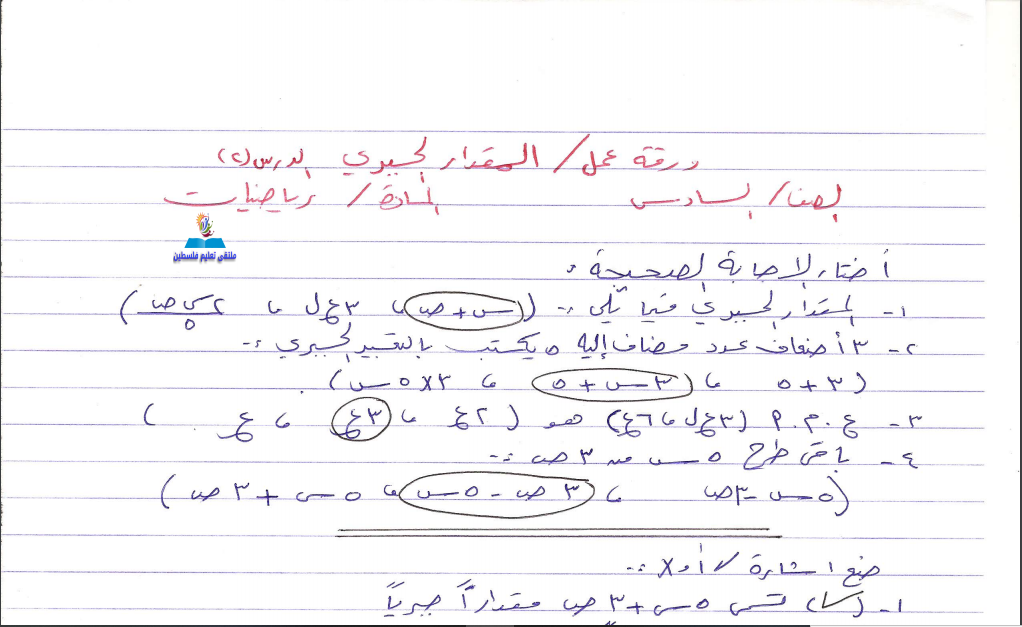 ورقة عمل / المقدار الجبري الدرس (٢)
الصف / السادس المادة / رياضيات
ملتقى تعليم فلسطين
أختار الإجابة الصحيحة :
١- المقدار الجبري فيما يلي :- (س + ص ، ٣ع ل ، ٢س ص / ٥)
٢- ٣ أضعاف عدد مضاف إليه ٥ يكتب بالتعبير الجبري :-
(٣ + ٥ ، ٣س + ٥ ، ٣ × ٥س)
٣- ع . م . ٩ (٣ع ل ، ٦ع) هو (٢ع ، ٣ع ، ع)
٤- باقي طرح ٥س من ٣ص :-
(٥س - ٣ص ، ٣ص - ٥س ، ٥س + ٣ص)
ضع إشارة ✓ أو × :-
١- (✓) تسمى ٥س + ٣ص مقداراً جبرياً